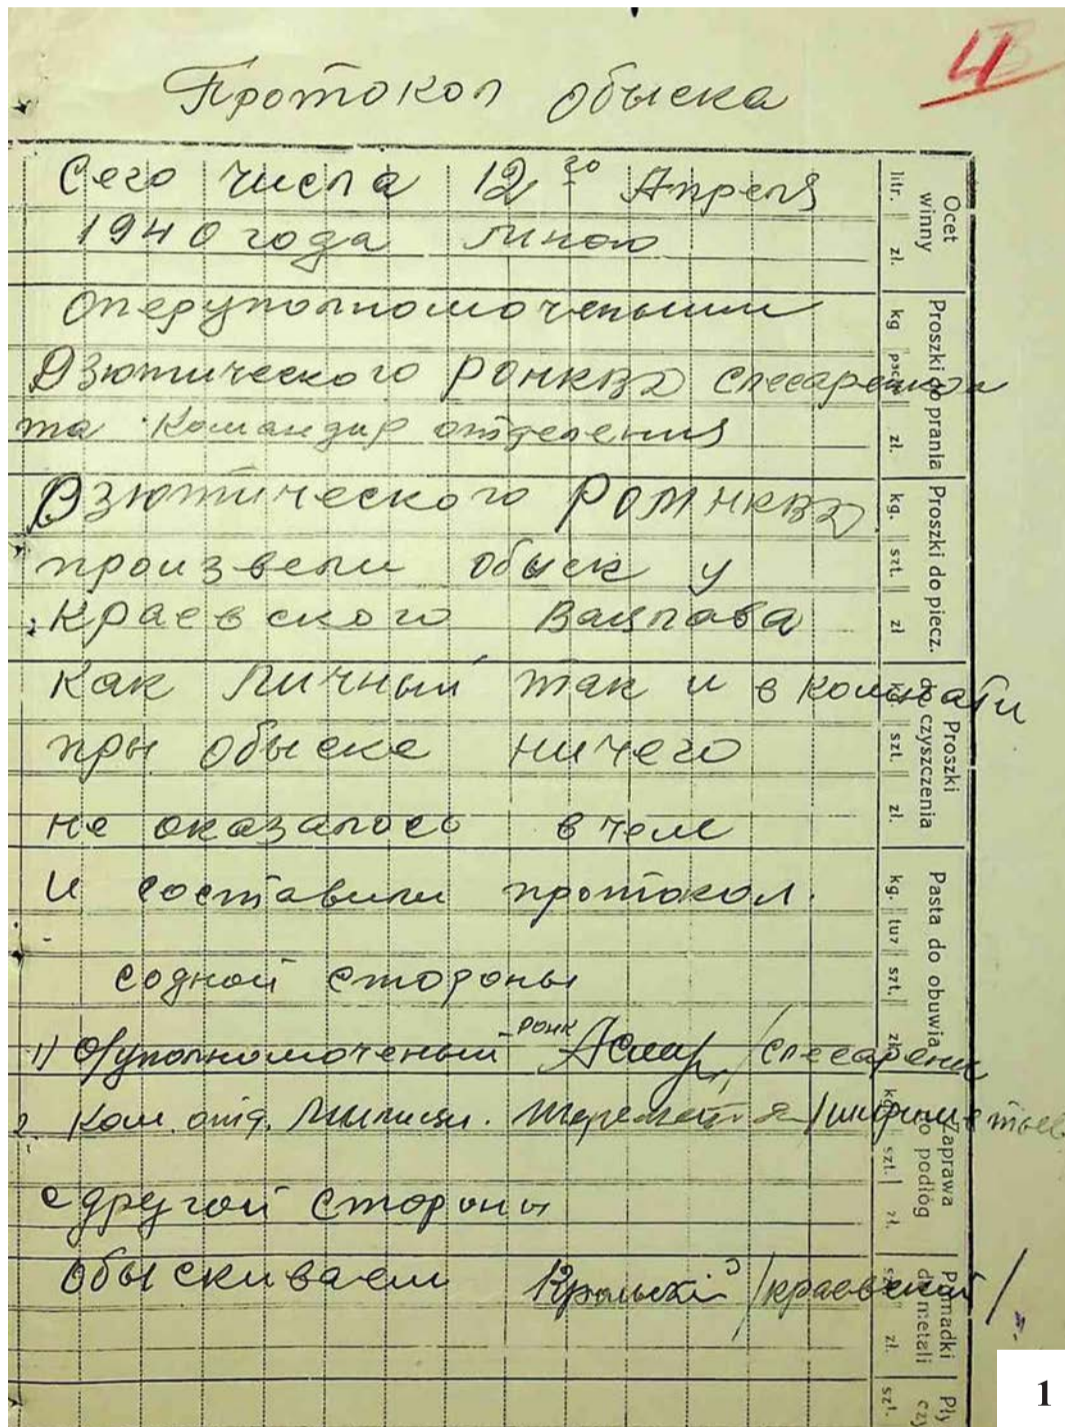 4
Протокол обыска
Сего числа 12го Апреля
1940 года мною
Оперуполномоченным
Дзютического РОНКВД Слесаренком
та Командир отделения
Дзютического РОМНКВД
произвели обыск у
Краевского Вацлава
Как личный так и в комнати
пры обыске ничего
не оказалось в чем
и составили протокол.
содной стороны
1) О/уполномоченый РОНК /Слесарени
2. Ком. отд. Милиции.
с другой стороны
обыскиваем /краевский/
Ocet winny
litr. zł.
Proszki do prania
kg zł.
Proszki do piecz.
kg. szt. zł
Proszki do czyszczenia
szt. zł.
Pasta do obuwia
kg. tuz szt.
Zaprawa do podłóg
szt. zł.
Pomadki do metali
zł.
Pły
szt.
1